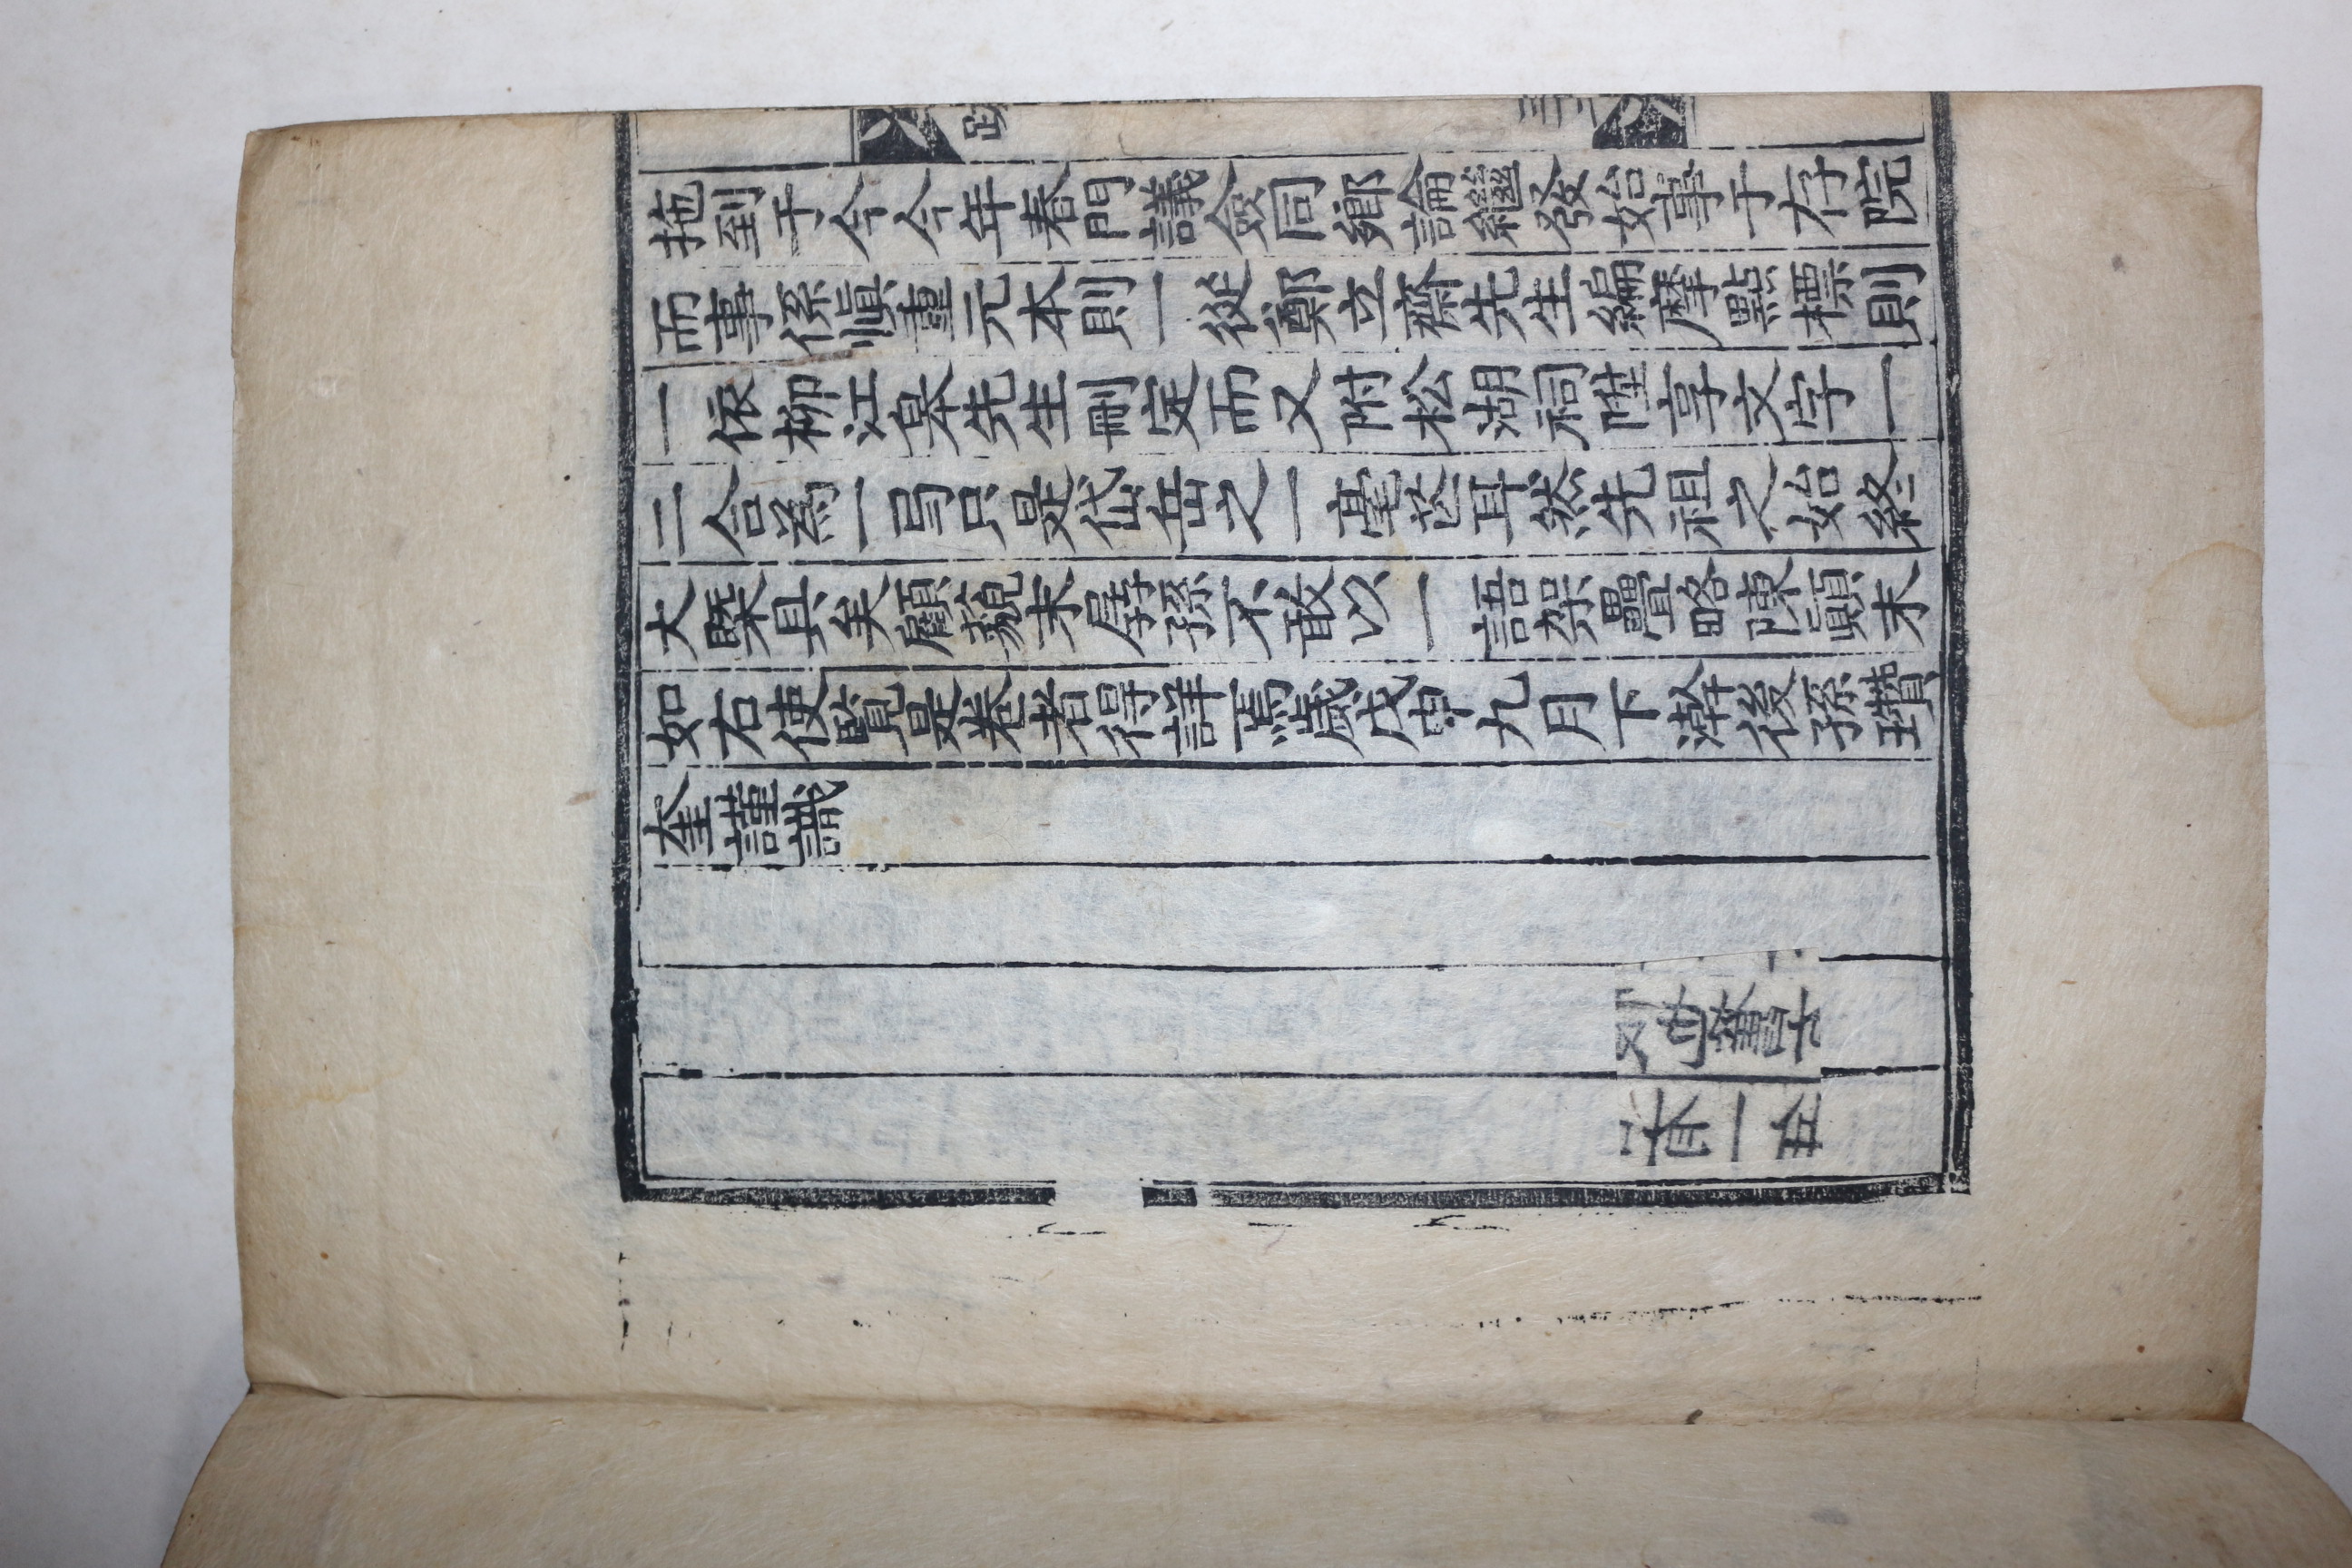 拖到于今今年春門議僉同鄕論繼發始事于存院
而事係愼重元本則一從鄭立齋先生編摩點標則
一依柳江皐先生刪定而又附松湖祠陞享文字一
二合為一弓只是岱岳之一毫芒耳然先祖之始終
大槩具矣顧藐末孱孫不敢以一語架疊略陳顚末
如右使覧是卷者得詳焉歲戊申九月下澣後孫瓚
奎謹識
跋